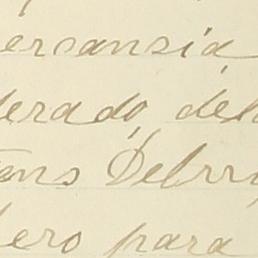 ercansia
derado del
ans Delrry
ero para